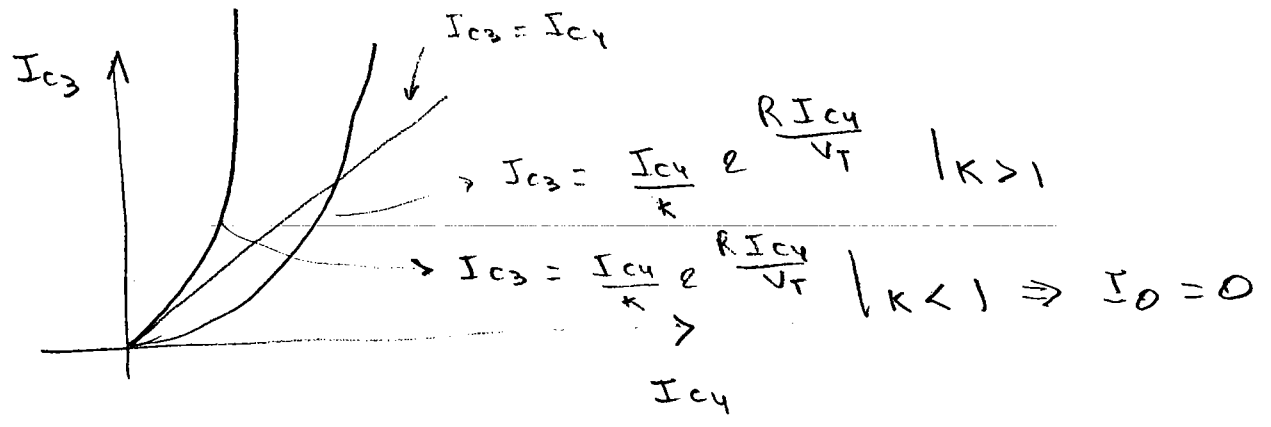 I_{C3} = I_{C4}
I_{C3}
I_{C3} = \frac{I_{C4}}{K} e^{\frac{R I_{C4}}{V_T}} |_{K > 1}
I_{C3} = \frac{I_{C4}}{K} e^{\frac{R I_{C4}}{V_T}} |_{K < 1} ⇒ I_0 = 0
I_{C4}